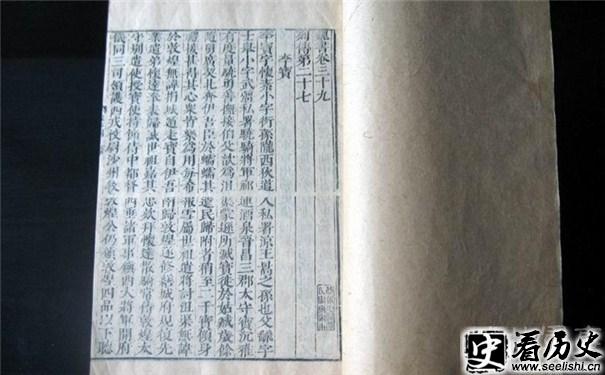 魏書卷三十九
列傳第二十七
李寶
李寶字懷素小字衍孫隴西狄道人私署涼王暠之孫也父翻字
士舉小字武彊私署驍騎將軍祁連酒泉晉昌三郡太守寶沉雅
有度量驍勇善撫接伯父歆為沮渠蒙遜所滅寶徙於姑臧歲餘
隨舅唐契北奔伊吾臣於蠕蠕其遺民歸附者稍至二千寶傾身
禮接甚得其心衆皆樂為用每希報雪屬世祖遣將討沮渠無諱
於敦煌無諱捐城遁走寶自伊吾南歸敦煌遂修繕城府規復先
業遣弟懷達奉表歸誠世祖嘉其忠款拜懷達散騎常侍敦煌太
守別遣使授寶使持節侍中都督西垂諸軍事鎮西大將軍開府
儀同三司領護西戎校尉沙州牧敦煌公仍領敦煌四品以下聽
史 看历史
www.seelishi.cn